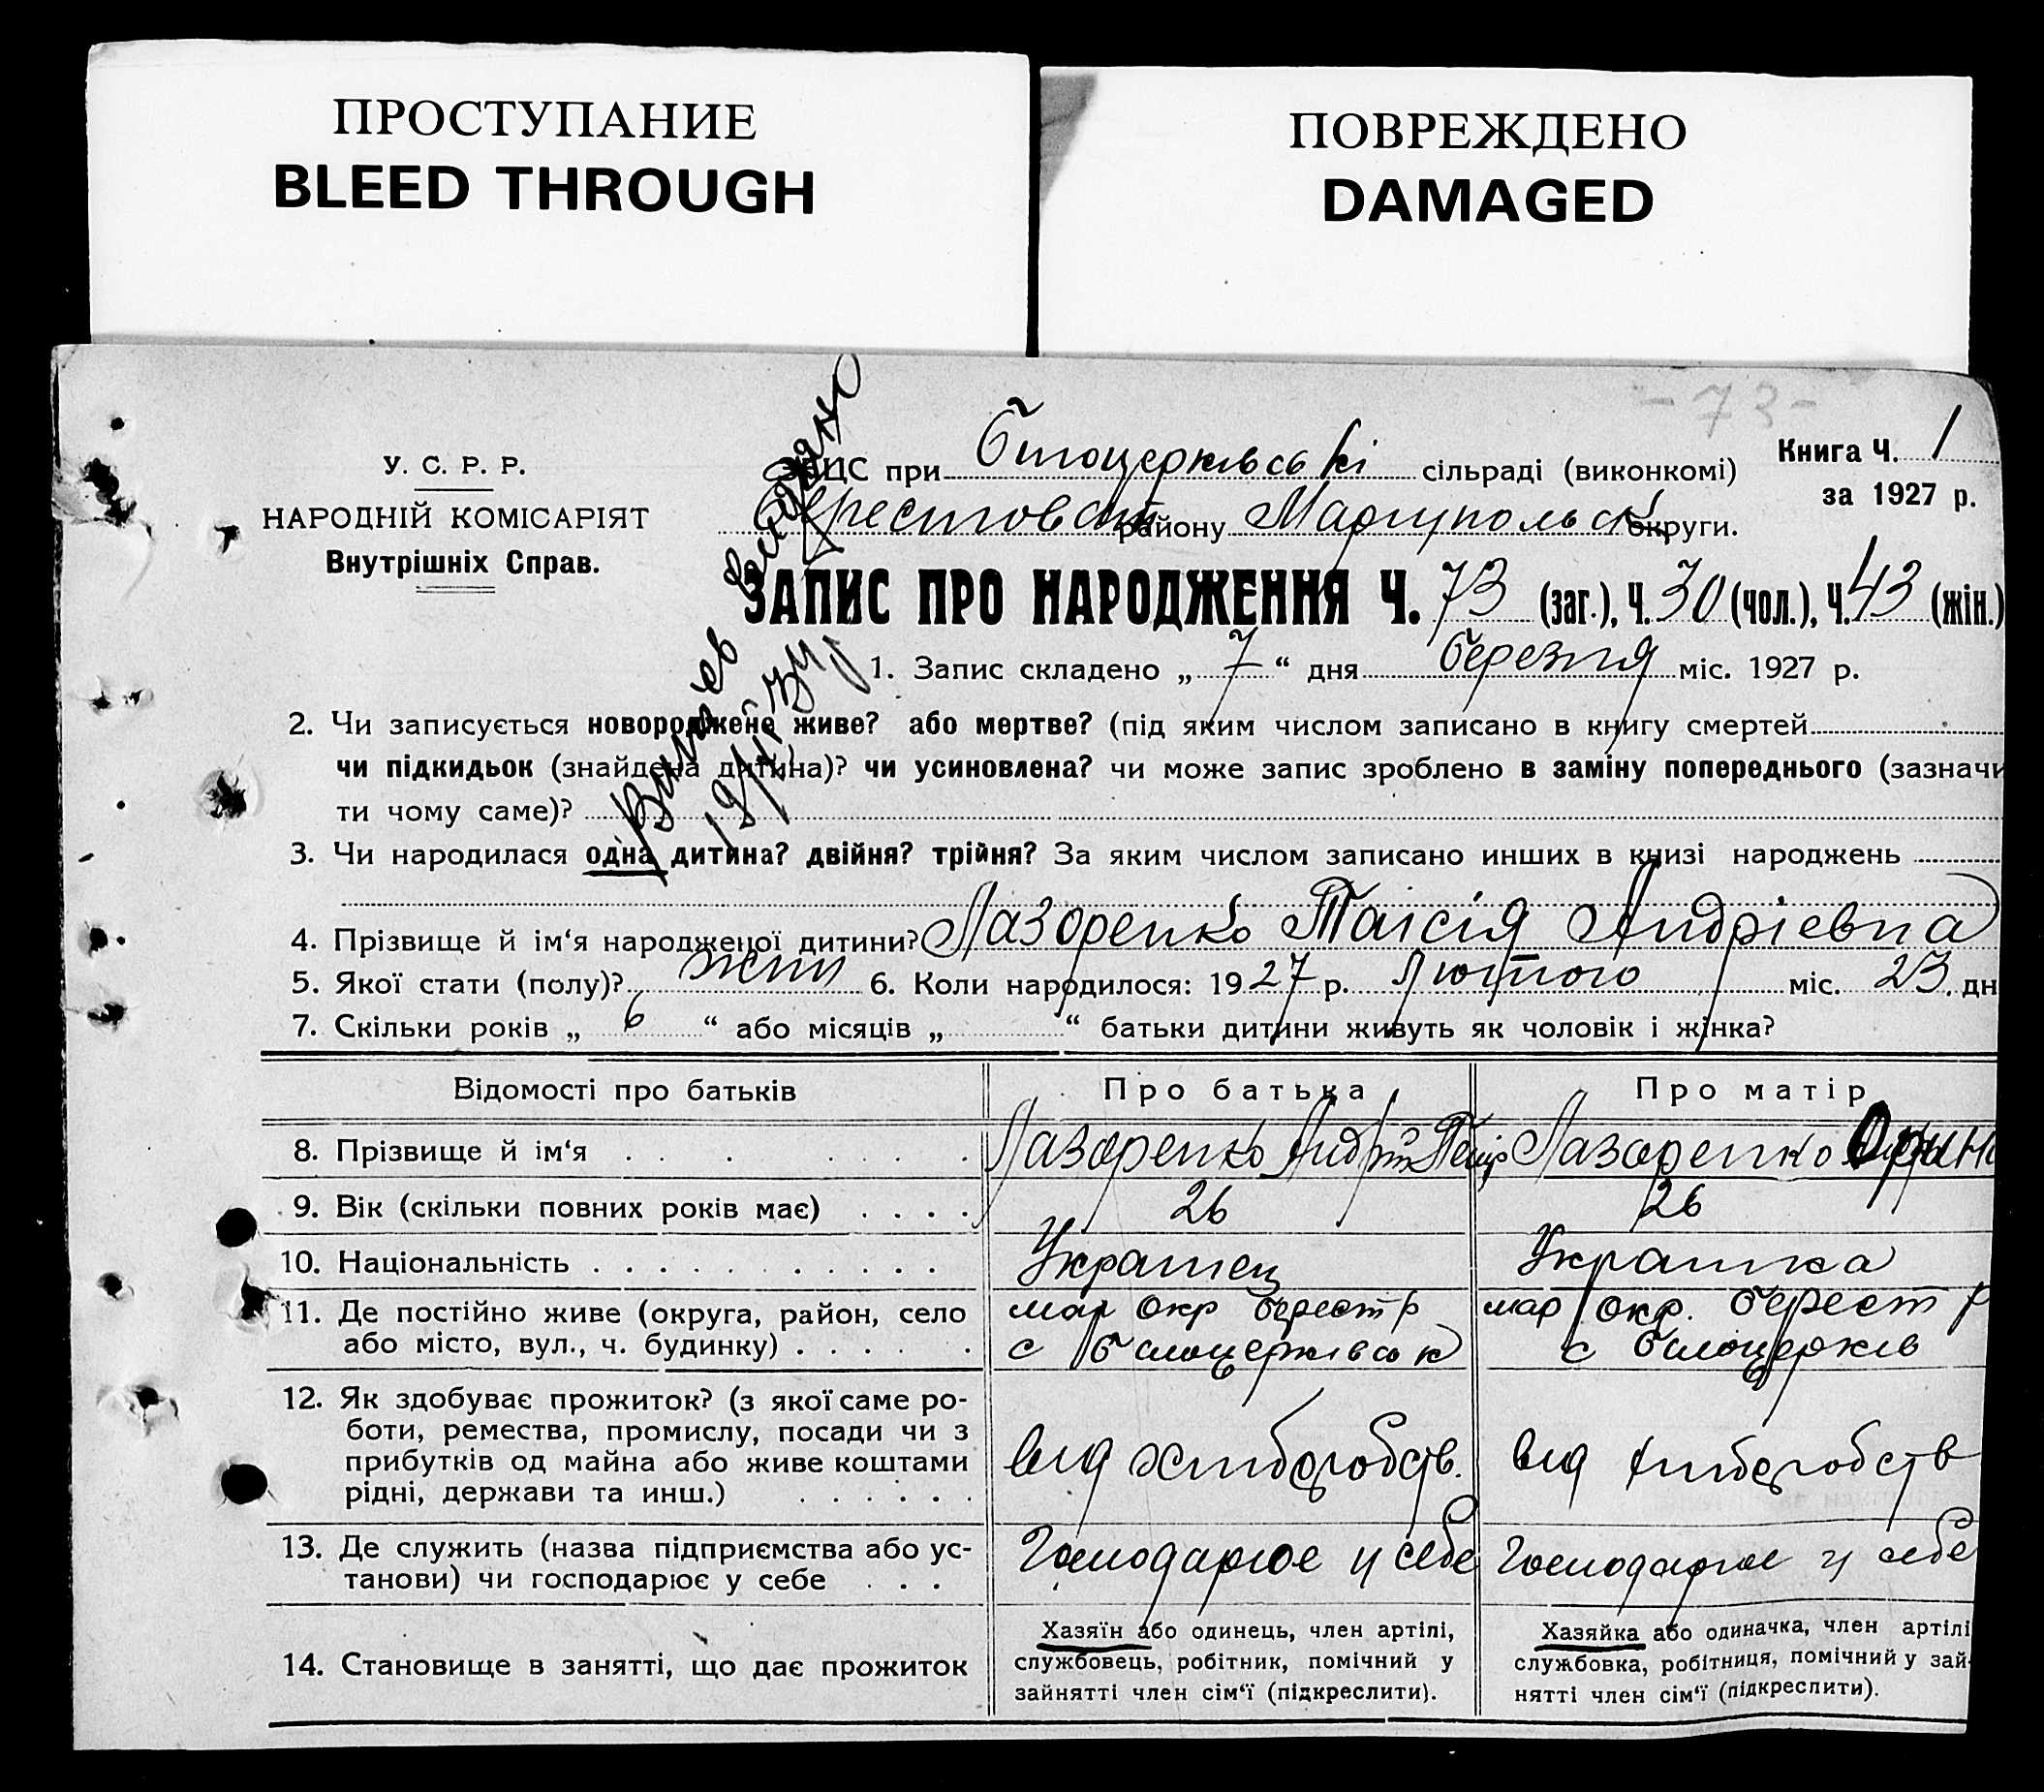 ПРОСТУПАНИЕ
BLEED THROUGH
ПОВРЕЖДЕНО
DAMAGED
- 73 -
У. С. Р. Р.
НАРОДНІЙ КОМІСАРІЯТ
Внутрішніх Справ.
Книга Ч. 1
за 1927 р.
ЗПИС при Білоцерківські сільраді (виконкомі)
Берестовськ району Маріупольск округи.
ЗАПИС ПРО НАРОДЖЕННЯ Ч. 73 (заг.), Ч. 30 (чол.), Ч. 43 (жін.)
1. Запис складено „ 7 “ дня березня міс. 1927 р.
2. Чи записується новороджене живе? або мертве? (під яким числом записано в книгу смертей
чи підкидьок (знайдена дитина)? чи усиновлена? чи може запис зроблено в заміну попереднього (зазначи
ти чому саме)?
3. Чи народилася одна дитина? двійня? трійня? За яким числом записано инших в книзі народжень
4. Прізвище й ім‘я народженої дитини? Лазоренко Таісія Андріевна
5. Якої стати (полу)? жін 6. Коли народилося: 1927 р. лютого міс. 23. дн
7. Скільки років „ 6 “ або місяців „ “ батьки дитини живуть як чоловік і жінка?
Відомості про батьків Про батька Про матір
8. Прізвище й ім‘я Лазоренко Андрій Лазоренко Орин
9. Вік (скільки повних років має) 26 26
10. Національність Украінец Украінка
11. Де постійно живе (округа, район, село мар окр берест р мар окр. берест р
або місто, вул., ч. будинку) с білоцерківськ с білоцерків
12. Як здобуває прожиток? (з якої саме ро-
боти, ремества, промислу, посади чи з
прибутків од майна або живе коштами від хліборобств. від хліборобств
рідні, держави та инш.)
13. Де служить (назва підприємства або ус- Господарює у себе Господарює у себе
танови) чи господарює у себе
14. Становище в занятті, що дає прожиток
Хазяїн або одинець, член артілі,
службовець, робітник, помічний у
зайнятті член сім‘ї (підкреслити).
Хазяйка або одиначка, член артілі
службовка, робітниця, помічний у зай-
нятті член сім‘ї (підкреслити).